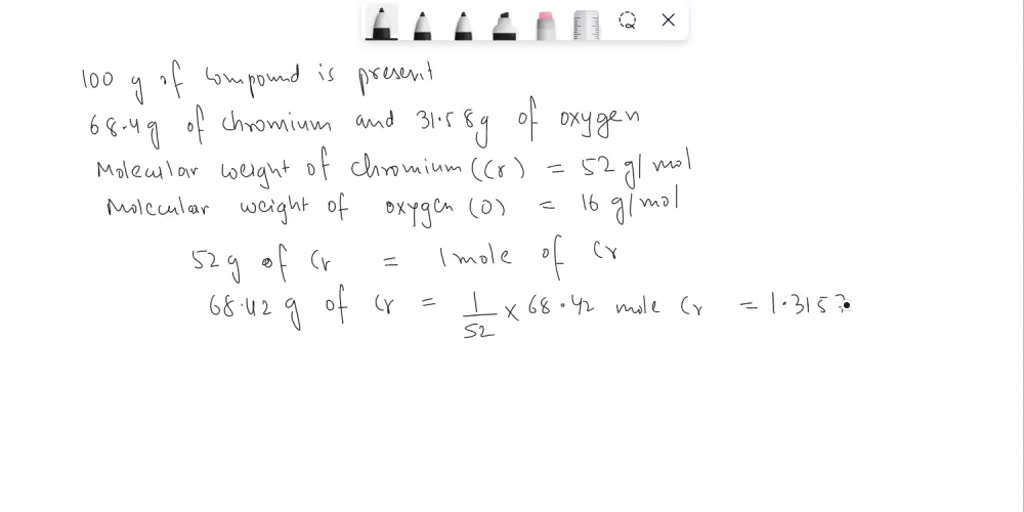 100 g of compound is present
68.4g of chromium and 31.58g of oxygen
Molecular weight of chromium (Cr) = 52 g/mol
Molecular weight of oxygen (O) = 16 g/mol
52g of Cr = 1 mole of Cr
68.42 g of Cr = 1/52 × 68.42 mole Cr = 1.315